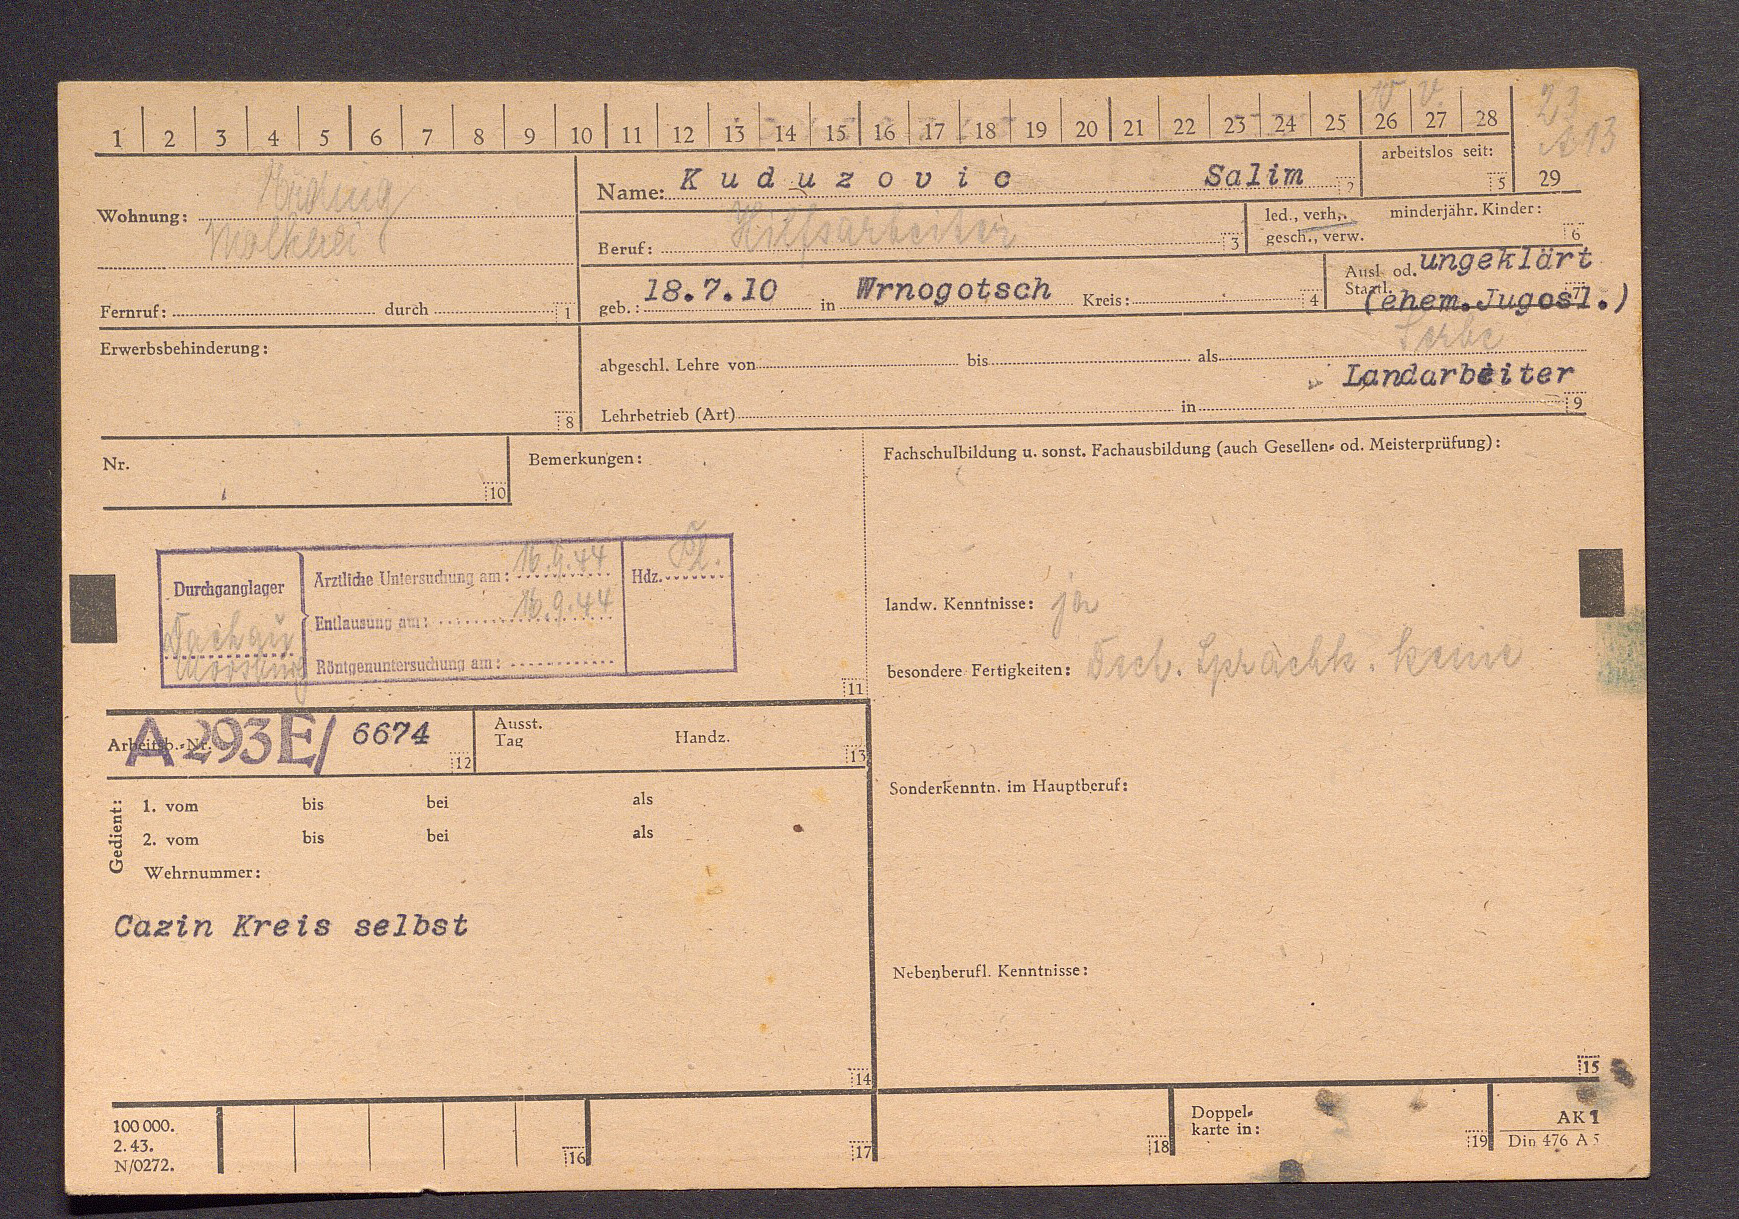 1 2 3 4 5 6 7 8 9 10 11 12 13 14 15 16 17 18 19 20 21 22 23 24 25 26 27 28
23
A 13
29
arbeitslos seit: 5
Name: Kuduzovic Salim 2
Wohnung:
Molkerei
Beruf: Hilfsarbeiter 3
led., verh., minderjähr. Kinder:
gesch., verw. 6
geb.: 18.7.10 in Wrnogotsch Kreis: 4
Ausl. od. ungeklärt
Staatl. (ehem.Jugosl.) 7
Serbe
Fernruf: durch 1
Erwerbsbehinderung:
8
abgeschl. Lehre von bis als
Landarbeiter
Lehrbetrieb (Art) in 9
Nr.
10
Bemerkungen:
Fachschulbildung u. sonst. Fachausbildung (auch Gesellen- od. Meisterprüfung):
Durchganglager
Dachau
Moosburg
Ärztliche Untersuchung am: 16.9.44
Entlausung am: 16.9.44
Röntgenuntersuchung am:
Hdz.
11
landw. Kenntnisse: ja
besondere Fertigkeiten: Dech. Sprachk. keine
Arbeitsb.-Nr. A 293E/ 6674 12
Ausst.
Tag Handz. 13
Sonderkenntn. im Hauptberuf:
Gedient:
1. vom bis bei als
2. vom bis bei als
Wehrnummer:
Cazin Kreis selbst
14
Nebenberufl. Kenntnisse:
15
100 000.
2. 43.
N/0272.
16
17
18
Doppel-
karte in: 19
AK 1
Din 476 A 5